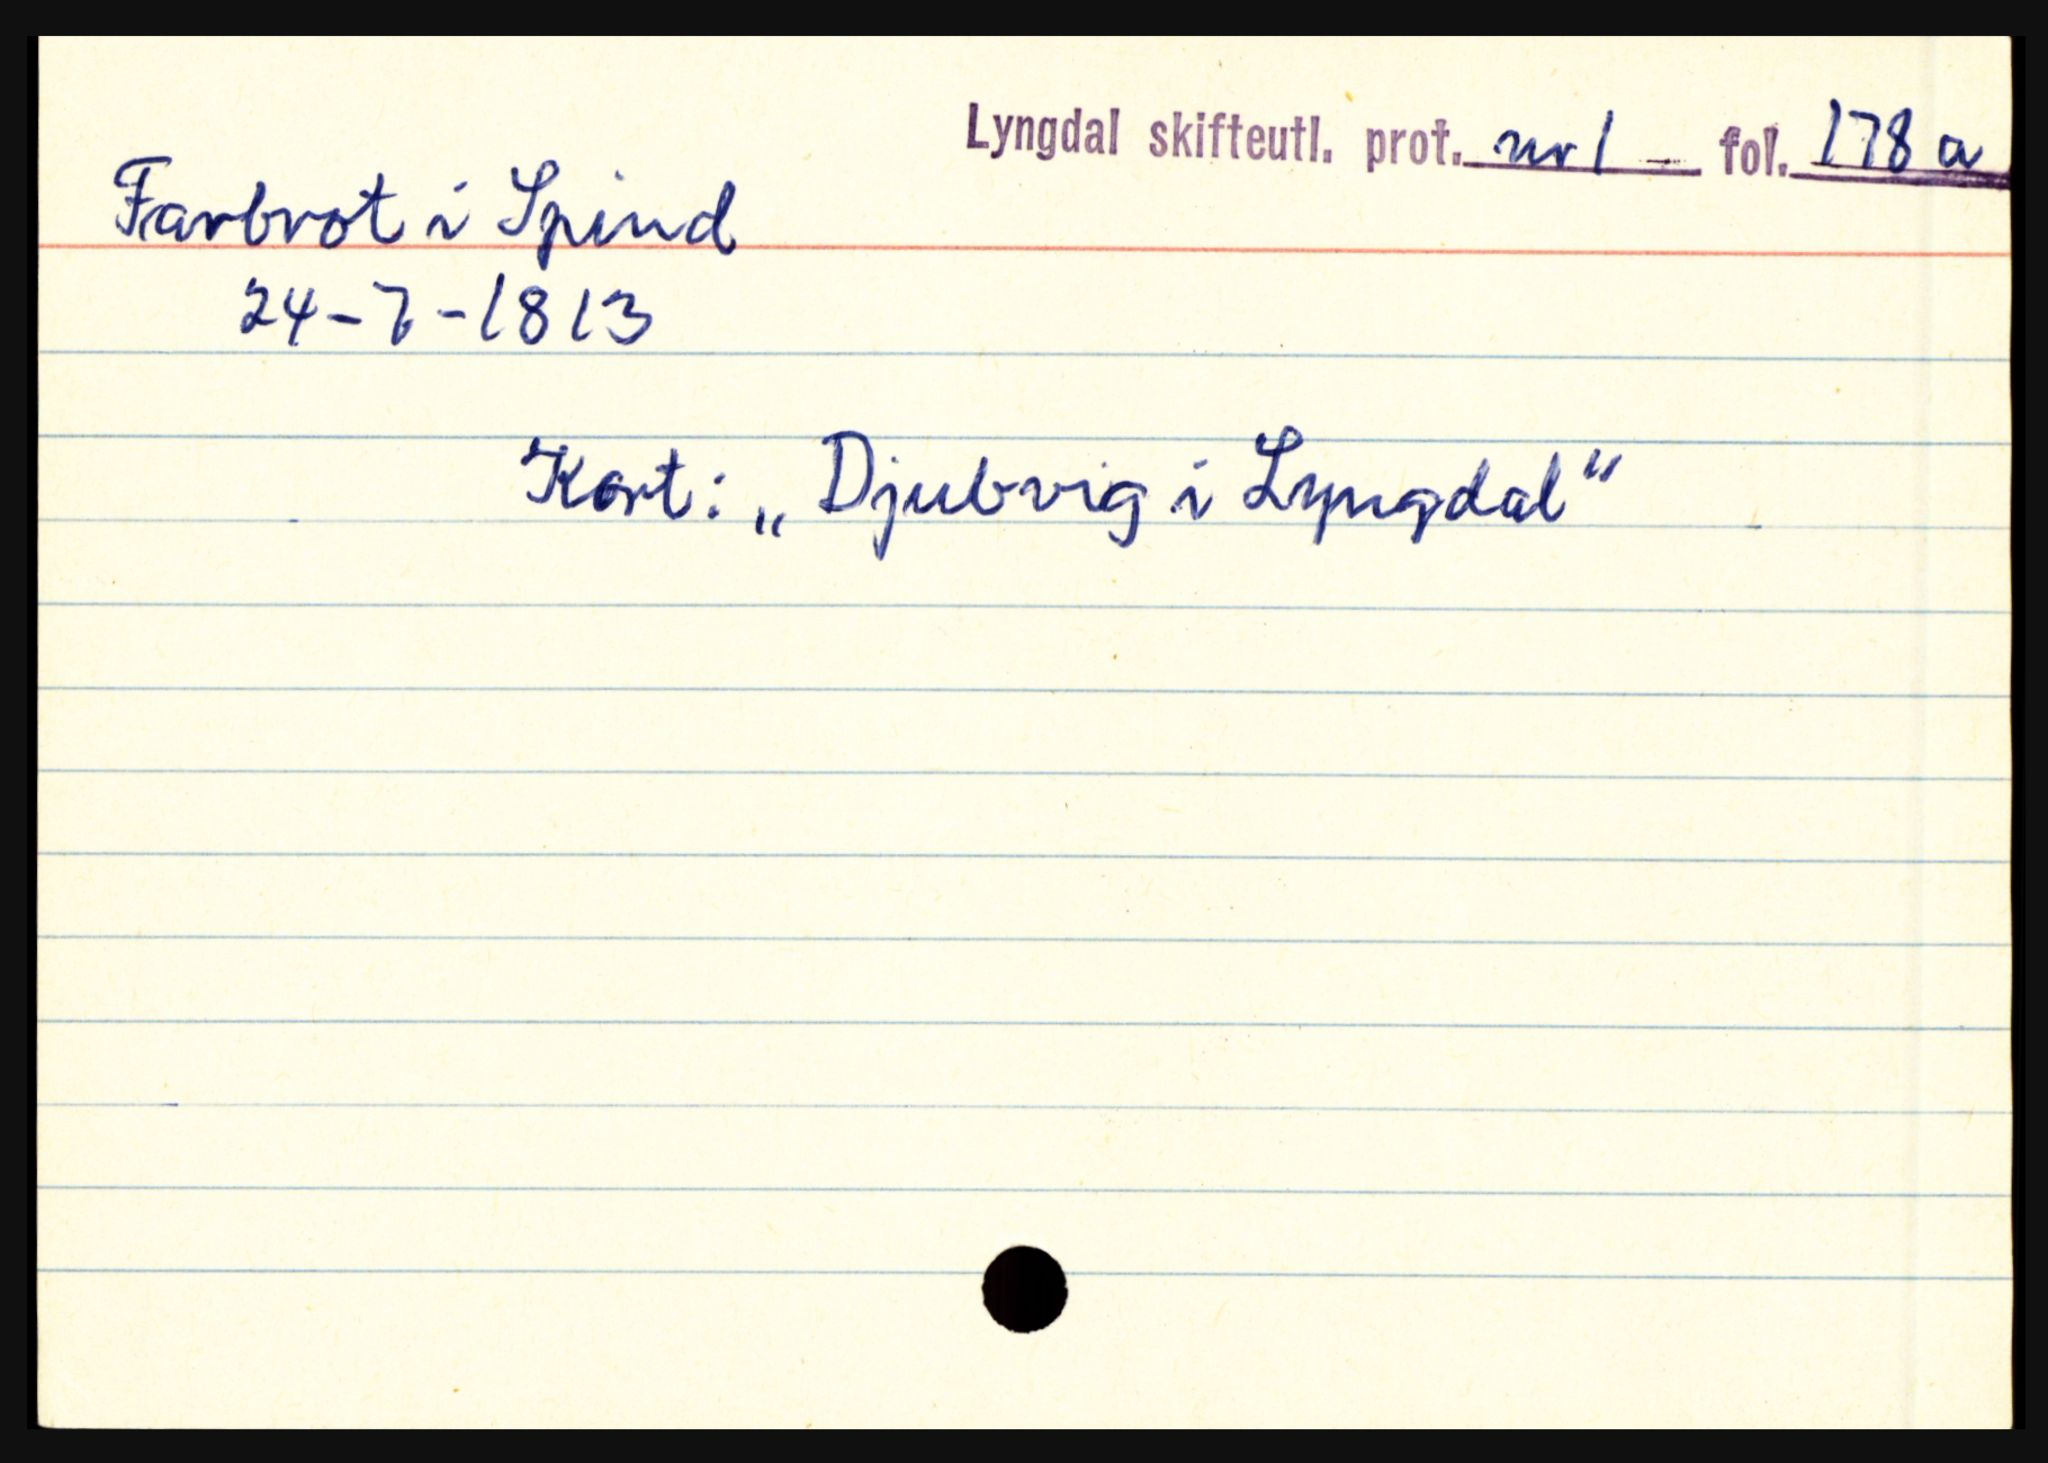 Lyngdal skifteutl. prot. nr 1 fol. 178 a
Farbrot i Spind
24-7-1813
Kort: „Djubvig i Lyngdal“